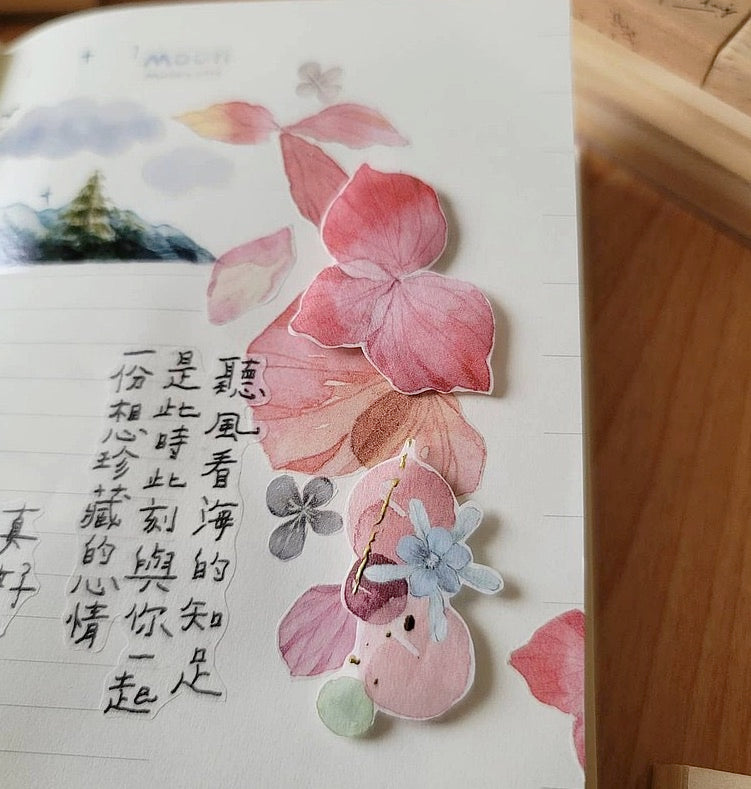 聽風看海的知足
是此時此刻與你一起
一份想珍藏的心情
真好